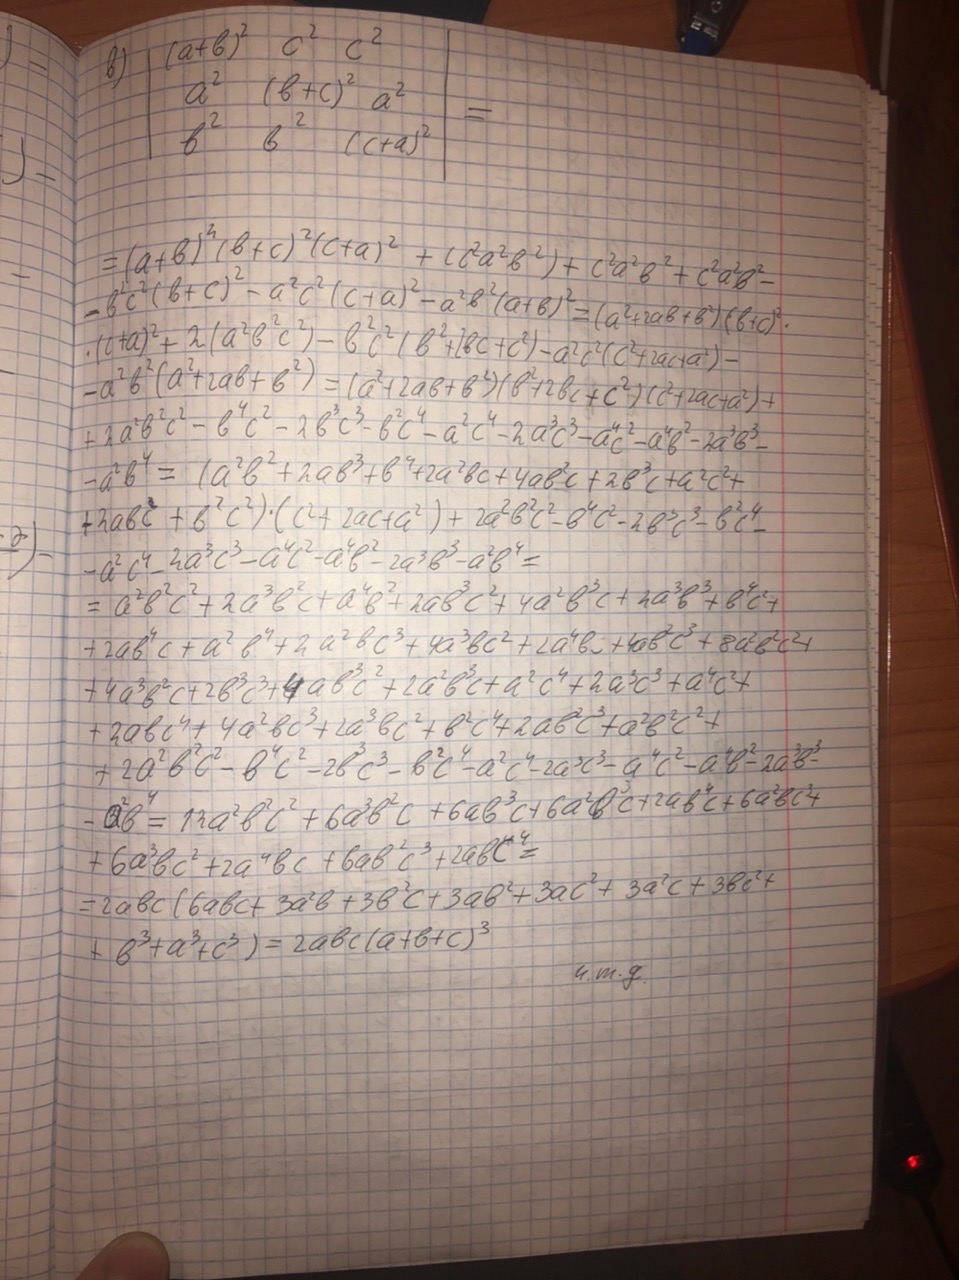 в) | (a+в)² c² c² |
| a² (в+c)² a² | =
| в² в² (c+a)² |
= (a+в)² (в+c)² (c+a)² + (c²a²в²) + c²a²в² + c²a²в² -
- в²c² (в+c)² - a²c² (c+a)² - a²в² (a+в)² = (a²+2aв+в²)(в+c)² ·
· (c+a)² + 2(a²в²c²) - в²c² (в²+2вc+c²) - a²c² (c²+2ac+a²) -
- a²в² (a²+2aв+в²) = (a²+2aв+в²)(в²+2вc+c²)(c²+2ac+a²) +
+ 2a²в²c² - в⁴c² - 2в³c³ - в²c⁴ - a²c⁴ - 2a³c³ - a⁴c² - a⁴в² - 2a³в³ -
- a²в⁴ = (a²в² + 2aв³ + в⁴ + 2a²вc + 4aв²c + 2в³c + a²c² +
+ 2aвc² + в²c²) · (c²+2ac+a²) + 2a²в²c² - в⁴c² - 2в³c³ - в²c⁴ -
- a²c⁴ - 2a³c³ - a⁴c² - a⁴в² - 2a³в³ - a²в⁴ =
= a²в²c² + 2a³в²c + a⁴в² + 2aв³c² + 4a²в³c + 2a³в³ + в⁴c² +
+ 2aв⁴c + a²в⁴ + 2a²вc³ + 4a³вc² + 2a⁴вc + 4aв²c³ + 8a²в²c² +
+ 4a³в²c + 2в³c³ + 4aв³c² + 2a²в³c + a²c⁴ + 2a³c³ + a⁴c² +
+ 2aвc⁴ + 4a²вc³ + 2a³вc² + в²c⁴ + 2aв²c³ + a²в²c² +
+ 2a²в²c² - в⁴c² - 2в³c³ - в²c⁴ - a²c⁴ - 2a³c³ - a⁴c² - a⁴в² - 2a³в³ -
- a²в⁴ = 12a²в²c² + 6a³в²c + 6aв³c² + 6a²в³c + 2aв⁴c + 6a²вc³ +
+ 6a³вc² + 2a⁴вc + 6aв²c³ + 2aвc⁴ =
= 2aвc (6aвc + 3a²в + 3в²c + 3aв² + 3ac² + 3a²c + 3вc² +
+ в³ + a³ + c³) = 2aвc (a+в+c)³
ч.т.д.